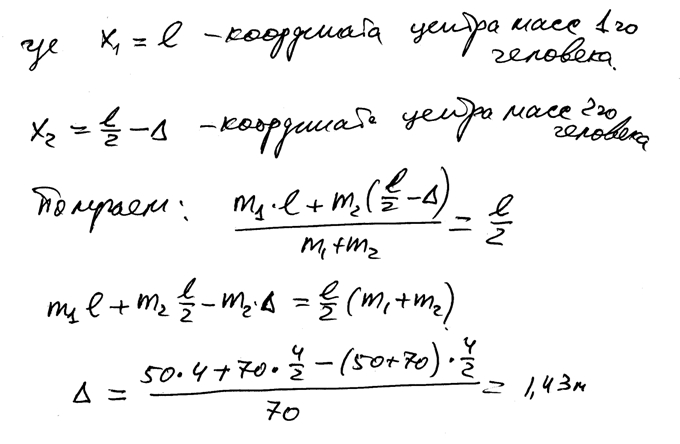 где x₁ = l – координата центра масс 1го
человека.
x₂ = l/2 – Δ – координата центра масс 2го
человека
Получаем: (m₁·l + m₂(l/2 – Δ))/(m₁+m₂) = l/2
m₁l + m₂ l/2 – m₂·Δ = l/2 (m₁+m₂)
Δ = (50·4+70·4/2 – (50+70)·4/2)/70 = 1,43м